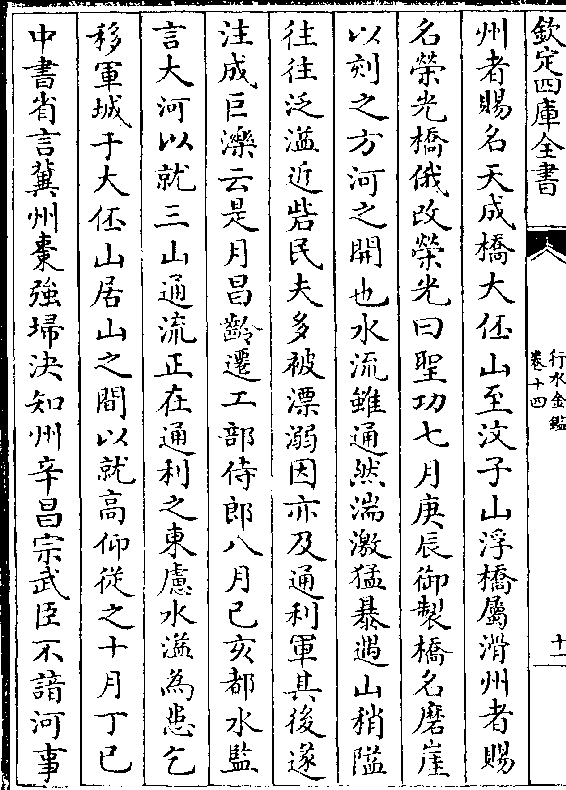 欽定四庫全書
行水金鑑
卷十四
十一
州者賜名天成橋大伾山至汶子山浮橋屬滑州者賜
名榮光橋俄改榮光曰聖功七月庚辰御製橋名磨崖
以刻之方河之開也水流雖通然湍激猛暴遇山稍隘
往往泛溢近砦民夫多被漂溺因亦及通利軍其後遂
注成巨濼云是月昌齡遷工部侍郎八月己亥都水監
言大河以就三山通流正在通利之東慮水溢為患乞
移軍城于大伾山居山之間以就高仰從之十月丁巳
中書省言冀州棗強埽決知州辛昌宗武臣不諳河事